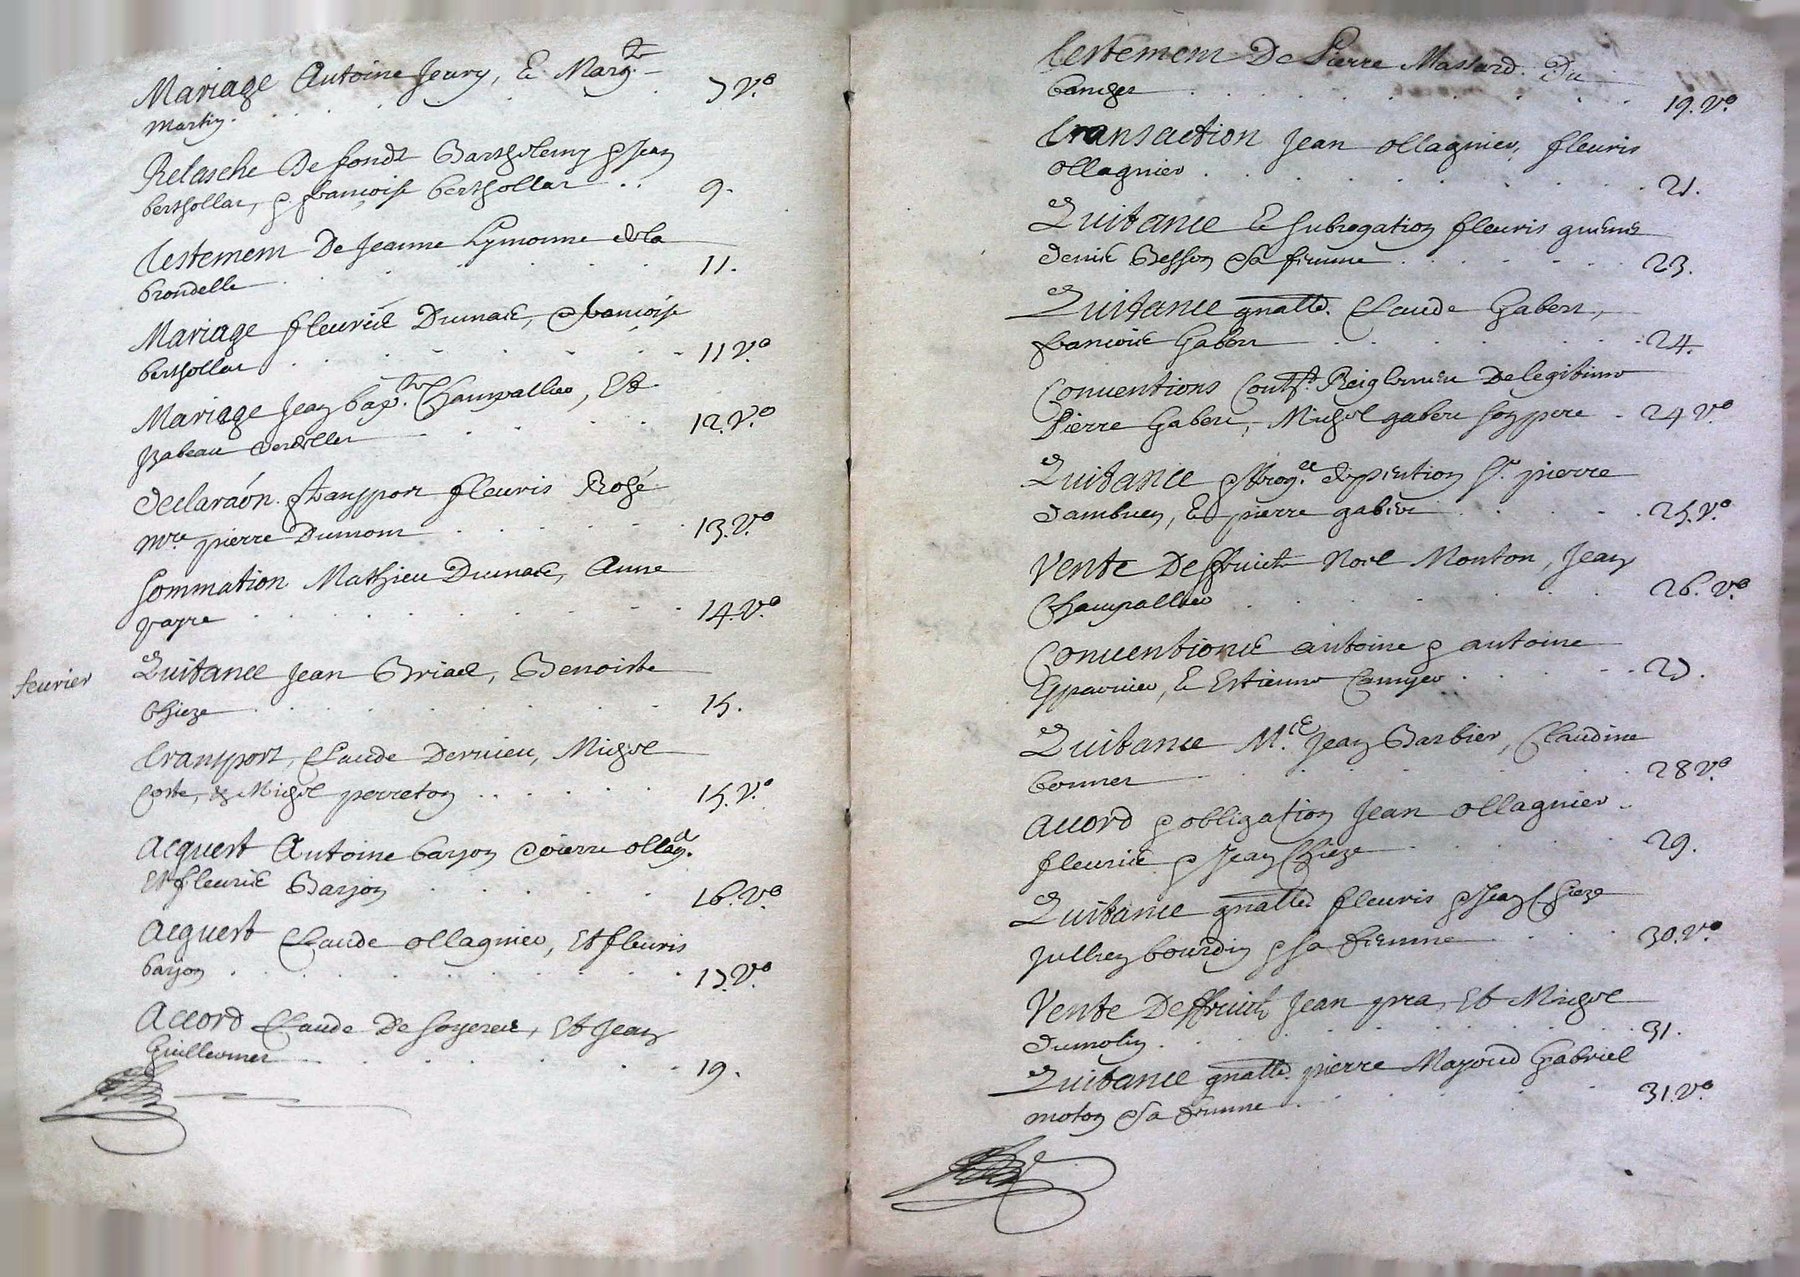 Mariage Antoine Jeury, & Marg.te
Martin . . . 7 V.o
Relasche De fondz Barthelemy & Jean
berthollat, & francoise berthollat . . 9.
Testement De Jeanne Lymonne dela
brondelle . . . 11.
Mariage fleurie Dumas, & francoise
berthollat . . . 11 V.o
Mariage Jean bap.te Champallier, Et
Izabeau . . . 12.V.o
declaraon. & transport fleuris Rogé
m.re pierre Dumont . . . 13.V.o
Sommation Mathieu Dumas, Anne
fayre . . . 14.V.o
feurier
Quitance Jean Briad, Benoiste
Chieze . . . 15.
Transport, Claude Dernieu, Michel
Coste, & Michel perreton . . . 15.V.o
Acquest Antoine baryon & pierre ollag.r
Et fleurie Baryon . . . 16.V.o
Acquest Claude ollagnier, Et fleuris
baryon . . . 17.V.o
Accord Claude De Soyeres, Et Jean
Guillermet . . . 19.
Testement De Pierre Massard Du
. . . 19.V.o
Transaction Jean ollagnier, fleuris
ollagnier . . . 21.
Quitance & subrogation fleuris
denis Besson & sa femme . . . 23.
Quitance gnalle. Claude Gabert,
francoise Gabert . . . 24.
Conuentions Cont.t Reiglement De legitime
Pierre Gabert, Michel gabert son pere . 24 V.o
Quitance & de pention S.r pierre
dambuen, & pierre gabert . . . 25.V.o
Vente De ffruict Noel Monton, Jean
Champallier . . . 26.V.o
Conuentiones antoine & antoine
Esparuier, & Estienne . . . 27.
Quitance M.re Jean Barbier, Claudine
bonnet . . . 28 V.o
Accord & obligation Jean ollagnier
fleurie & Jean Chieze . . . 29.
Quitance gnalle. fleuris & Jean Chieze
Jullien bourdin & sa femme . . . 30.V.o
Vente De ffruict Jean pra, Et Michel
dumolin . . . 31.
Quitance gnalle. pierre Mayoud Gabriel
moton & sa femme . . . 31.V.o